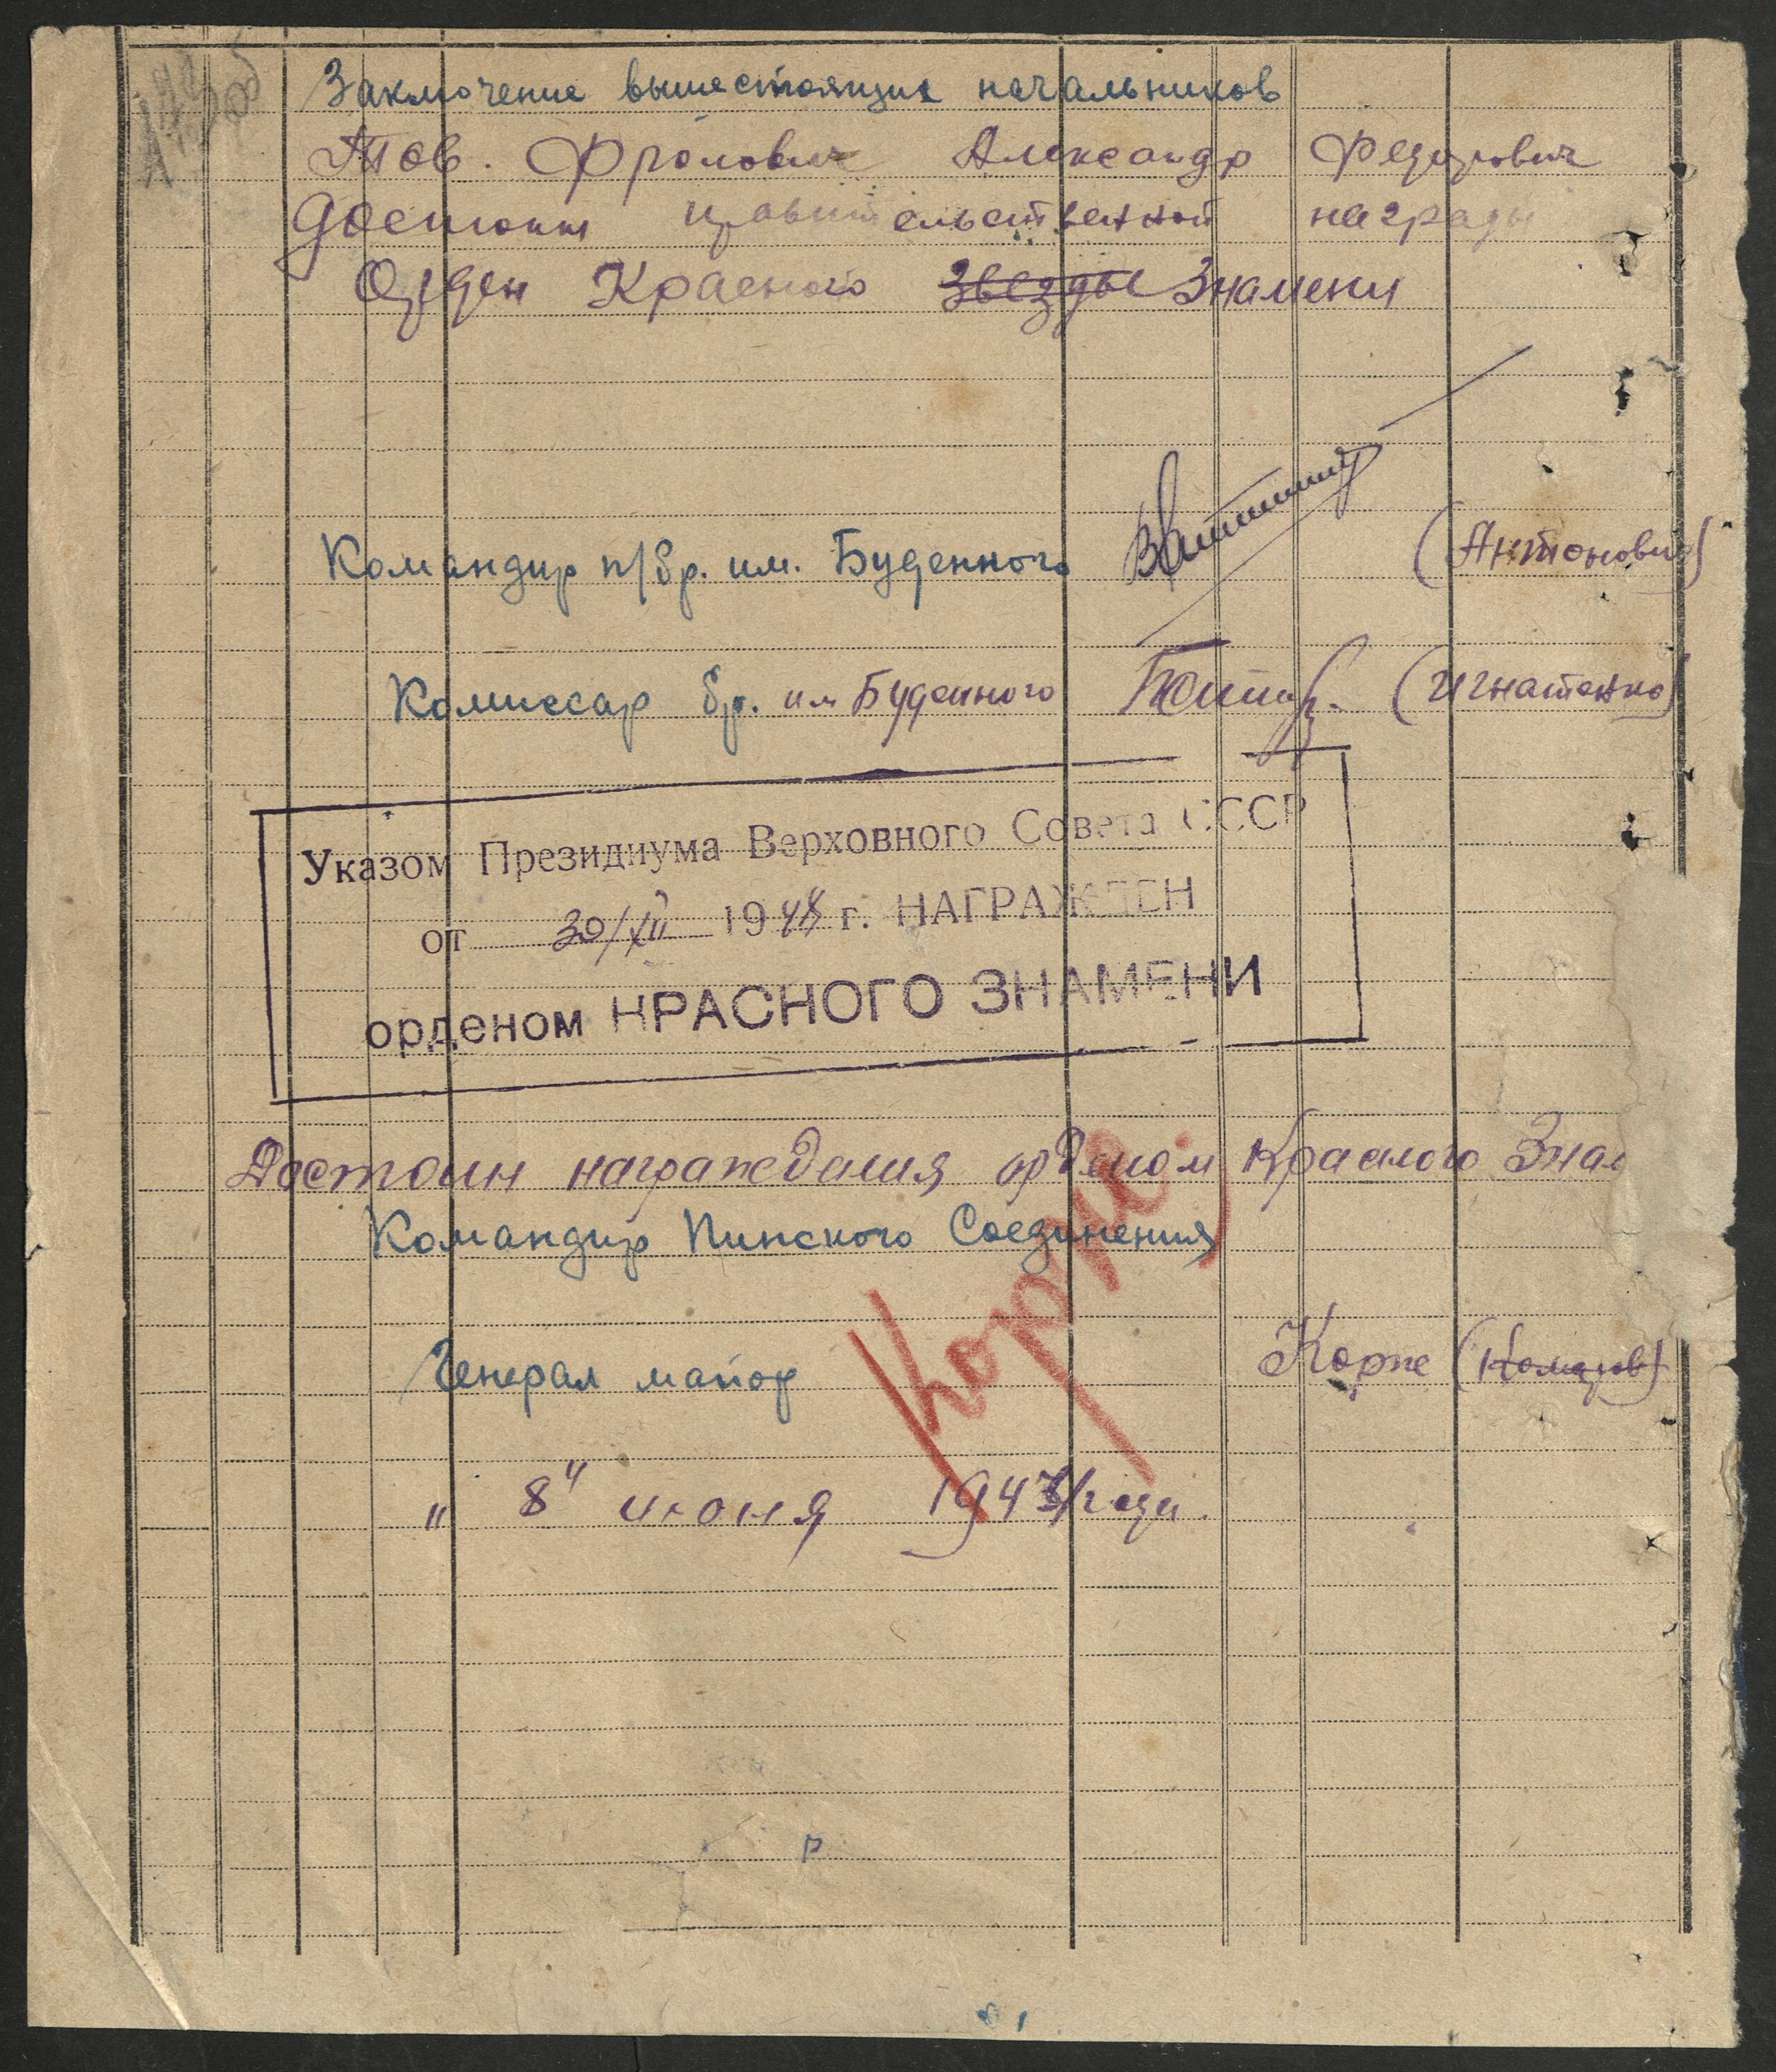 Заключение вышестоящих начальников
Тов. Фролович Александр Федорович
достоин правительственной награды
Орден Красного Звезды Знамени
Командир п/бр. им. Буденного (Антонович)
Комиссар бр. им Буденного (Игнатенко)
Указом Президиума Верховного Совета СССР
от 30/XII 1948 г. НАГРАЖДЕН
орденом КРАСНОГО ЗНАМЕНИ
Достоин награждения орденом Красного Знам
Командир Пинского Соединения
Корж
Генерал майор Корж (Комаров)
"8" июня 194 года.